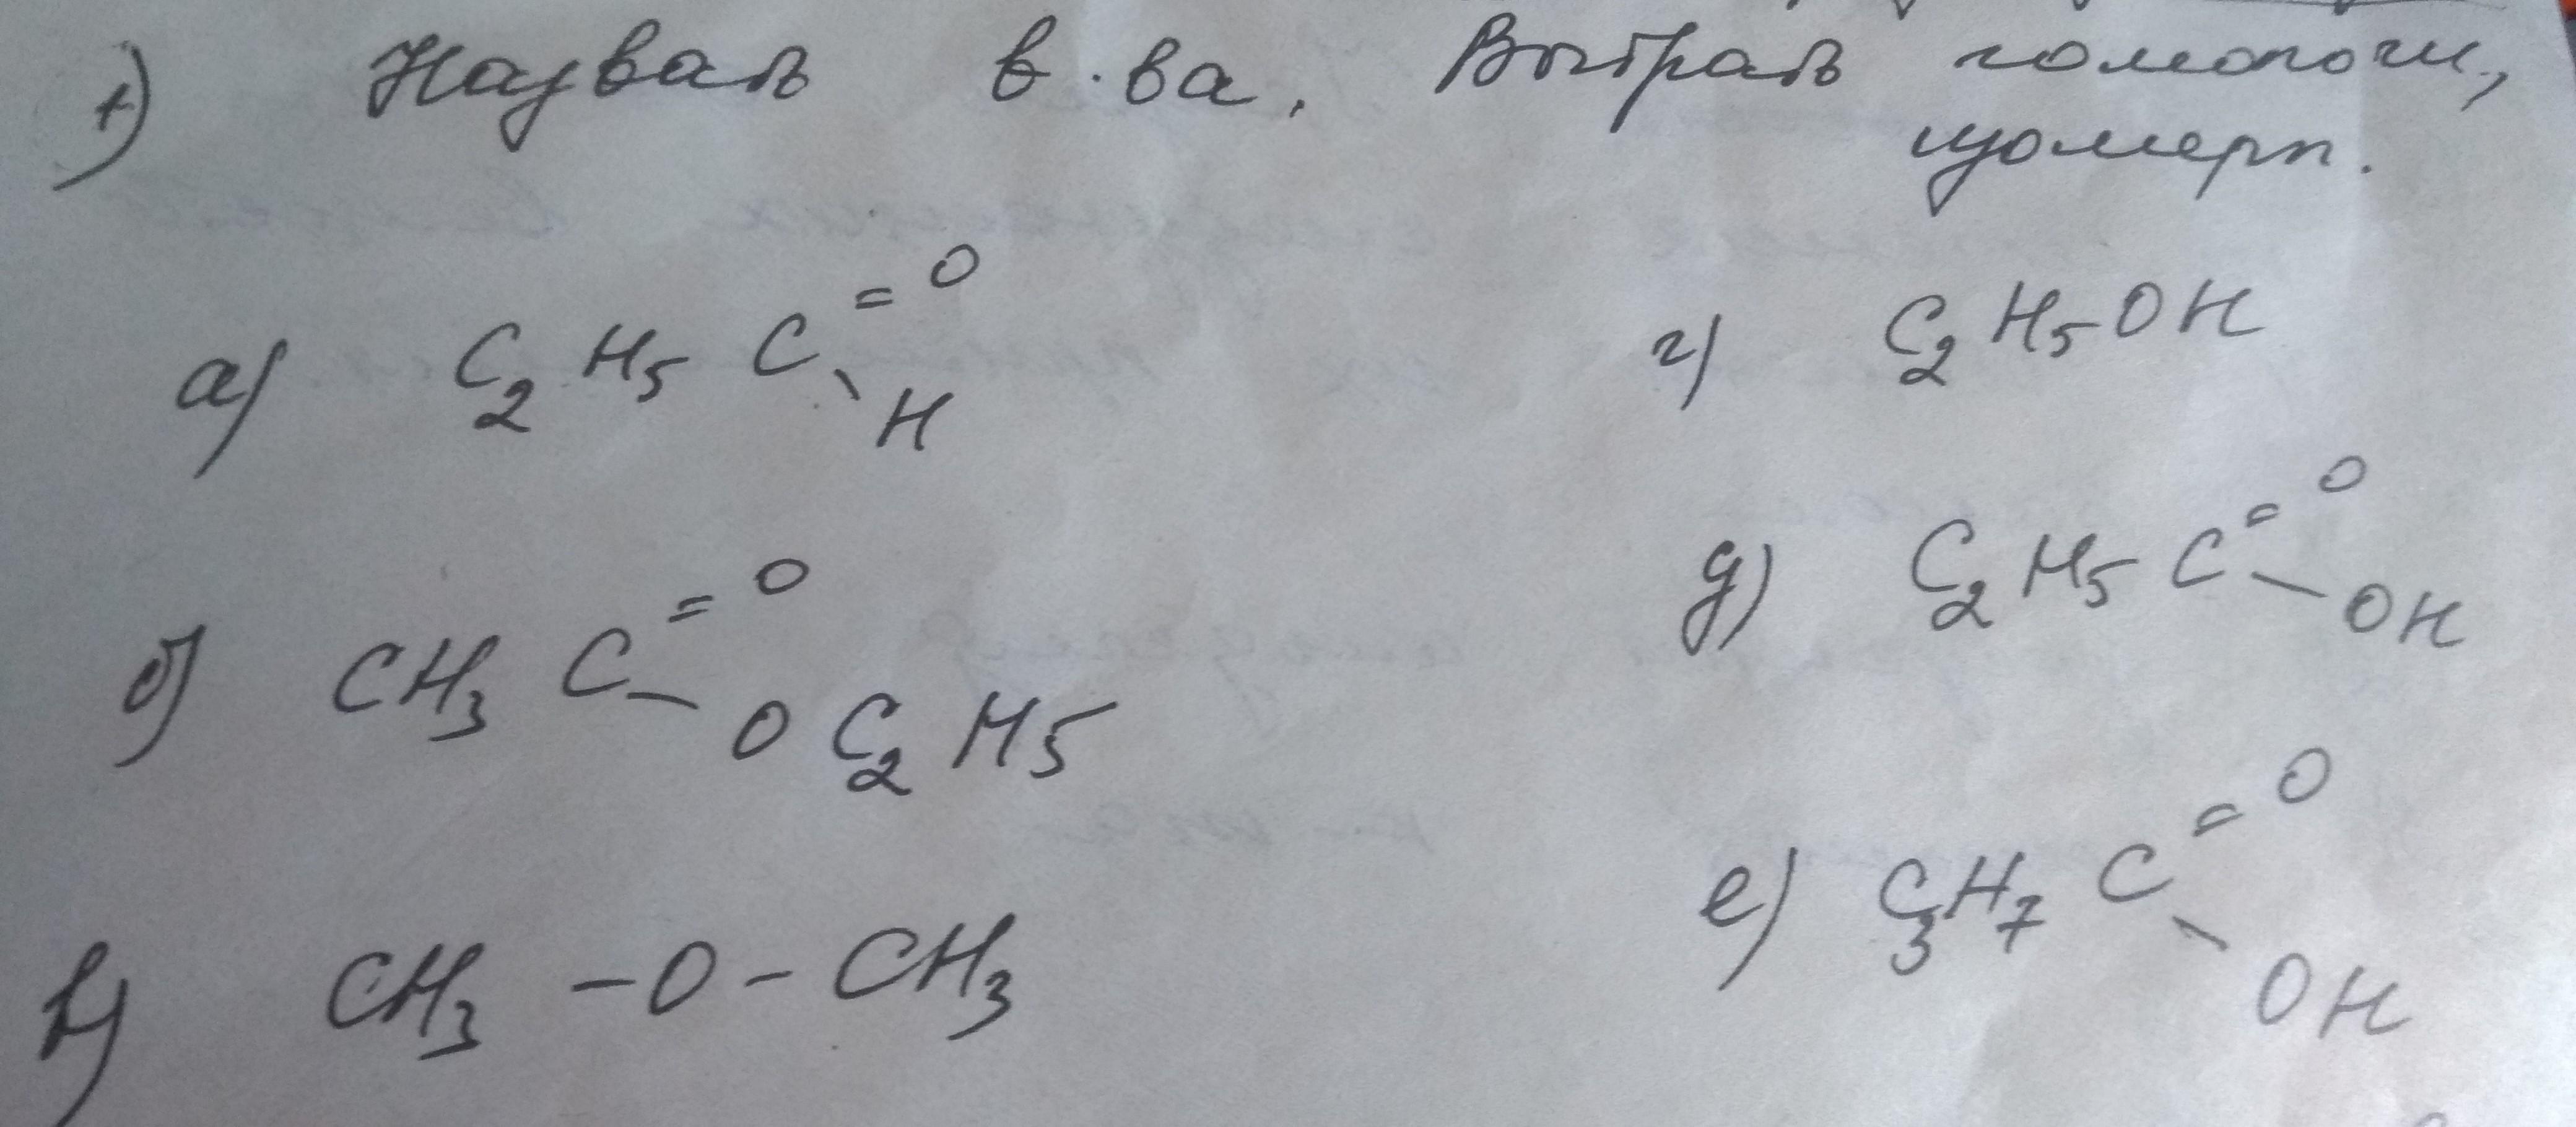 1) Назвать в-ва. Выбрать гомологи,
изомеры.
а) C2H5C=O
H
б) CH3C=O
–OC2H5
в) CH3–O–CH3
г) C2H5OH
д) C2H5C=O
–OH
е) C3H7C=O
OH